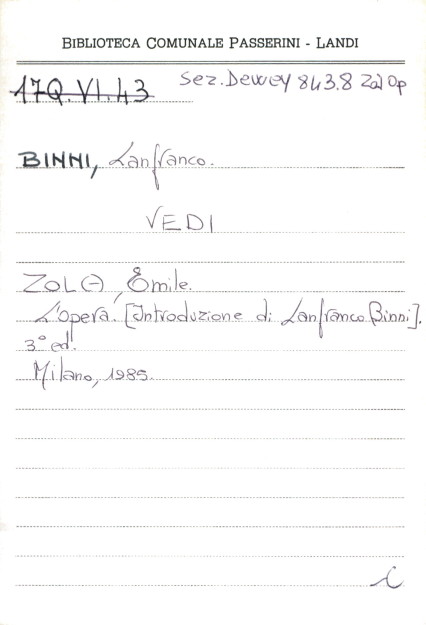 BIBLIOTECA COMUNALE PASSERINI - LANDI
17Q.VI.43 Sez. Dewey 843.8 Zol Op
BINNI, Lanfranco.
VEDI
ZOLA, Émile.
L'Opera. [Introduzione di Lanfranco Binni].
3° ed.
Milano, 1985.
i